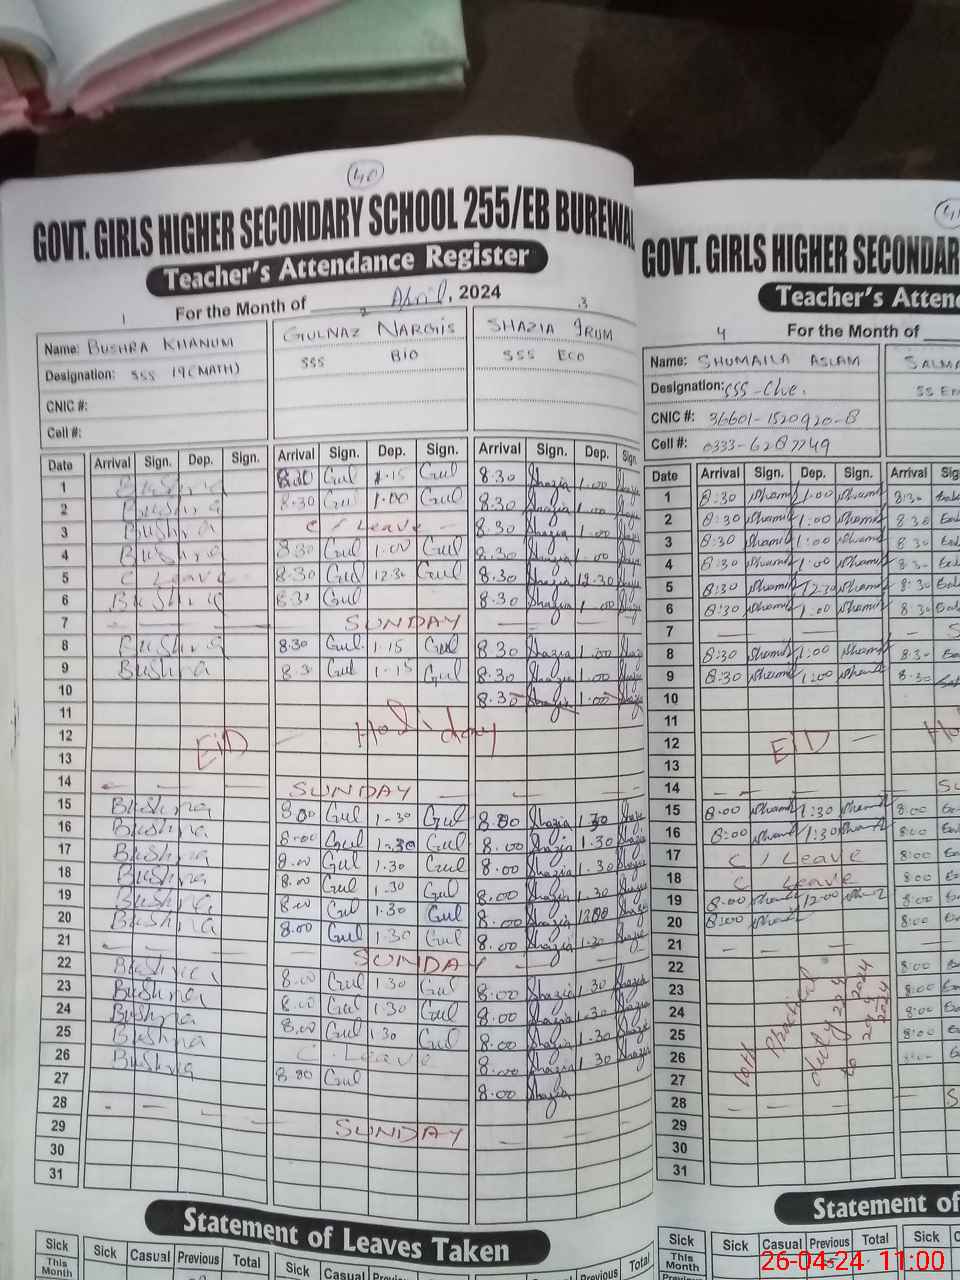 40
GOVT. GIRLS HIGHER SECONDARY SCHOOL 255/EB BUREWAL
Teacher's Attendance Register
For the Month of April, 2024
1 2 3
Name: BUSHRA KHANUM GULNAZ NARGIS SHAZIA IRUM
Designation: SSS 19 (MATH) SSS BIO SSS ECO
CNIC #:
Cell #:
Date Arrival Sign. Dep. Sign. Arrival Sign. Dep. Sign. Arrival Sign. Dep. Sign.
1 Bushra 8:30 Gul 1.15 Gul 8.30 Shazia 1.00 Shazia
2 Bushra 8.30 Gul 1.00 Gul 8.30 Shazia 1.00 Shazia
3 Bushra C / Leave 8.30 Shazia 1.00 Shazia
4 Bushra 8.30 Gul 1.00 Gul 8.30 Shazia 1.00 Shazia
5 C Leave 8.30 Gul 12.30 Gul 8.30 Shazia 12.30 Shazia
6 Bushra 8.30 Gul 8.30 Shazia 1.00 Shazia
7 SUNDAY
8 Bushra 8.30 Gul 1.15 Gul 8.30 Shazia 1.00 Shazia
9 Bushra 8.30 Gul 1.15 Gul 8.30 Shazia 1.00 Shazia
10 8.30 Shazia 1.00 Shazia
11
12 EiD - Holiday
13
14 SUNDAY
15 Bushra 8.00 Gul 1.30 Gul 8.00 Shazia 1.30 Shazia
16 Bushra 8.00 Gul 1.30 Gul 8.00 Shazia 1.30 Shazia
17 Bushra 8.00 Gul 1.30 Gul 8.00 Shazia 1.30 Shazia
18 Bushra 8.00 Gul 1.30 Gul 8.00 Shazia 1.30 Shazia
19 Bushra 8.00 Gul 1.30 Gul 8.00 Shazia Shazia
20 Bushra 8.00 Gul 1.30 Gul 8.00 Shazia 1.30 Shazia
21 SUNDAY
22 Bushra 8.00 Gul 1.30 Gul 8.00 Shazia 1.30 Shazia
23 Bushra 8.00 Gul 1.30 Gul 8.00 Shazia 1.30 Shazia
24 Bushra 8.00 Gul 1.30 Gul 8.00 Shazia 1.30 Shazia
25 Bushra C. Leave 8.00 Shazia 1.30 Shazia
26 Bushra 8.00 Gul 8.00 Shazia
27
28 SUNDAY
29
30
31
Statement of Leaves Taken
Sick This Month Sick Casual Previous Total Sick Casual Previous Total Total
GOVT. GIRLS HIGHER SECONDAR
Teacher's Atten
For the Month of
4
Name: SHUMAILA ASLAM SALMA
Designation: SSS-Che.
CNIC #: 36601-1520920-8
Cell #: 0333-6287749
Date Arrival Sign. Dep. Sign. Arrival Sig
1 8:30 1:00 8:30
2 8:30 1:00 8.30
3 8:30 1:00 8.30
4 8:30 1:00 8.30
5 8:30 12:30 8:30
6 8:30 1:00 8.30
7 S
8 8:30 1:00 8.30
9 8:30 1:00 8.30
10
11
12 EiD - Ho
13
14 SU
15 8:00 1:30 8:00
16 8:00 1:30 8:00
17 C / Leave 8:00
18 C Leave 8:00
19 8:00 12:00 8:00
20 8:00 8:00
21
22 8:00
23 8:00
24 8:00
25 8:00
26
27
28 S
29
30
31
Practical duty 22 4 2024 to
Statement of
Sick This Month Sick Casual Previous Total Sick C
26-04-24 11:00